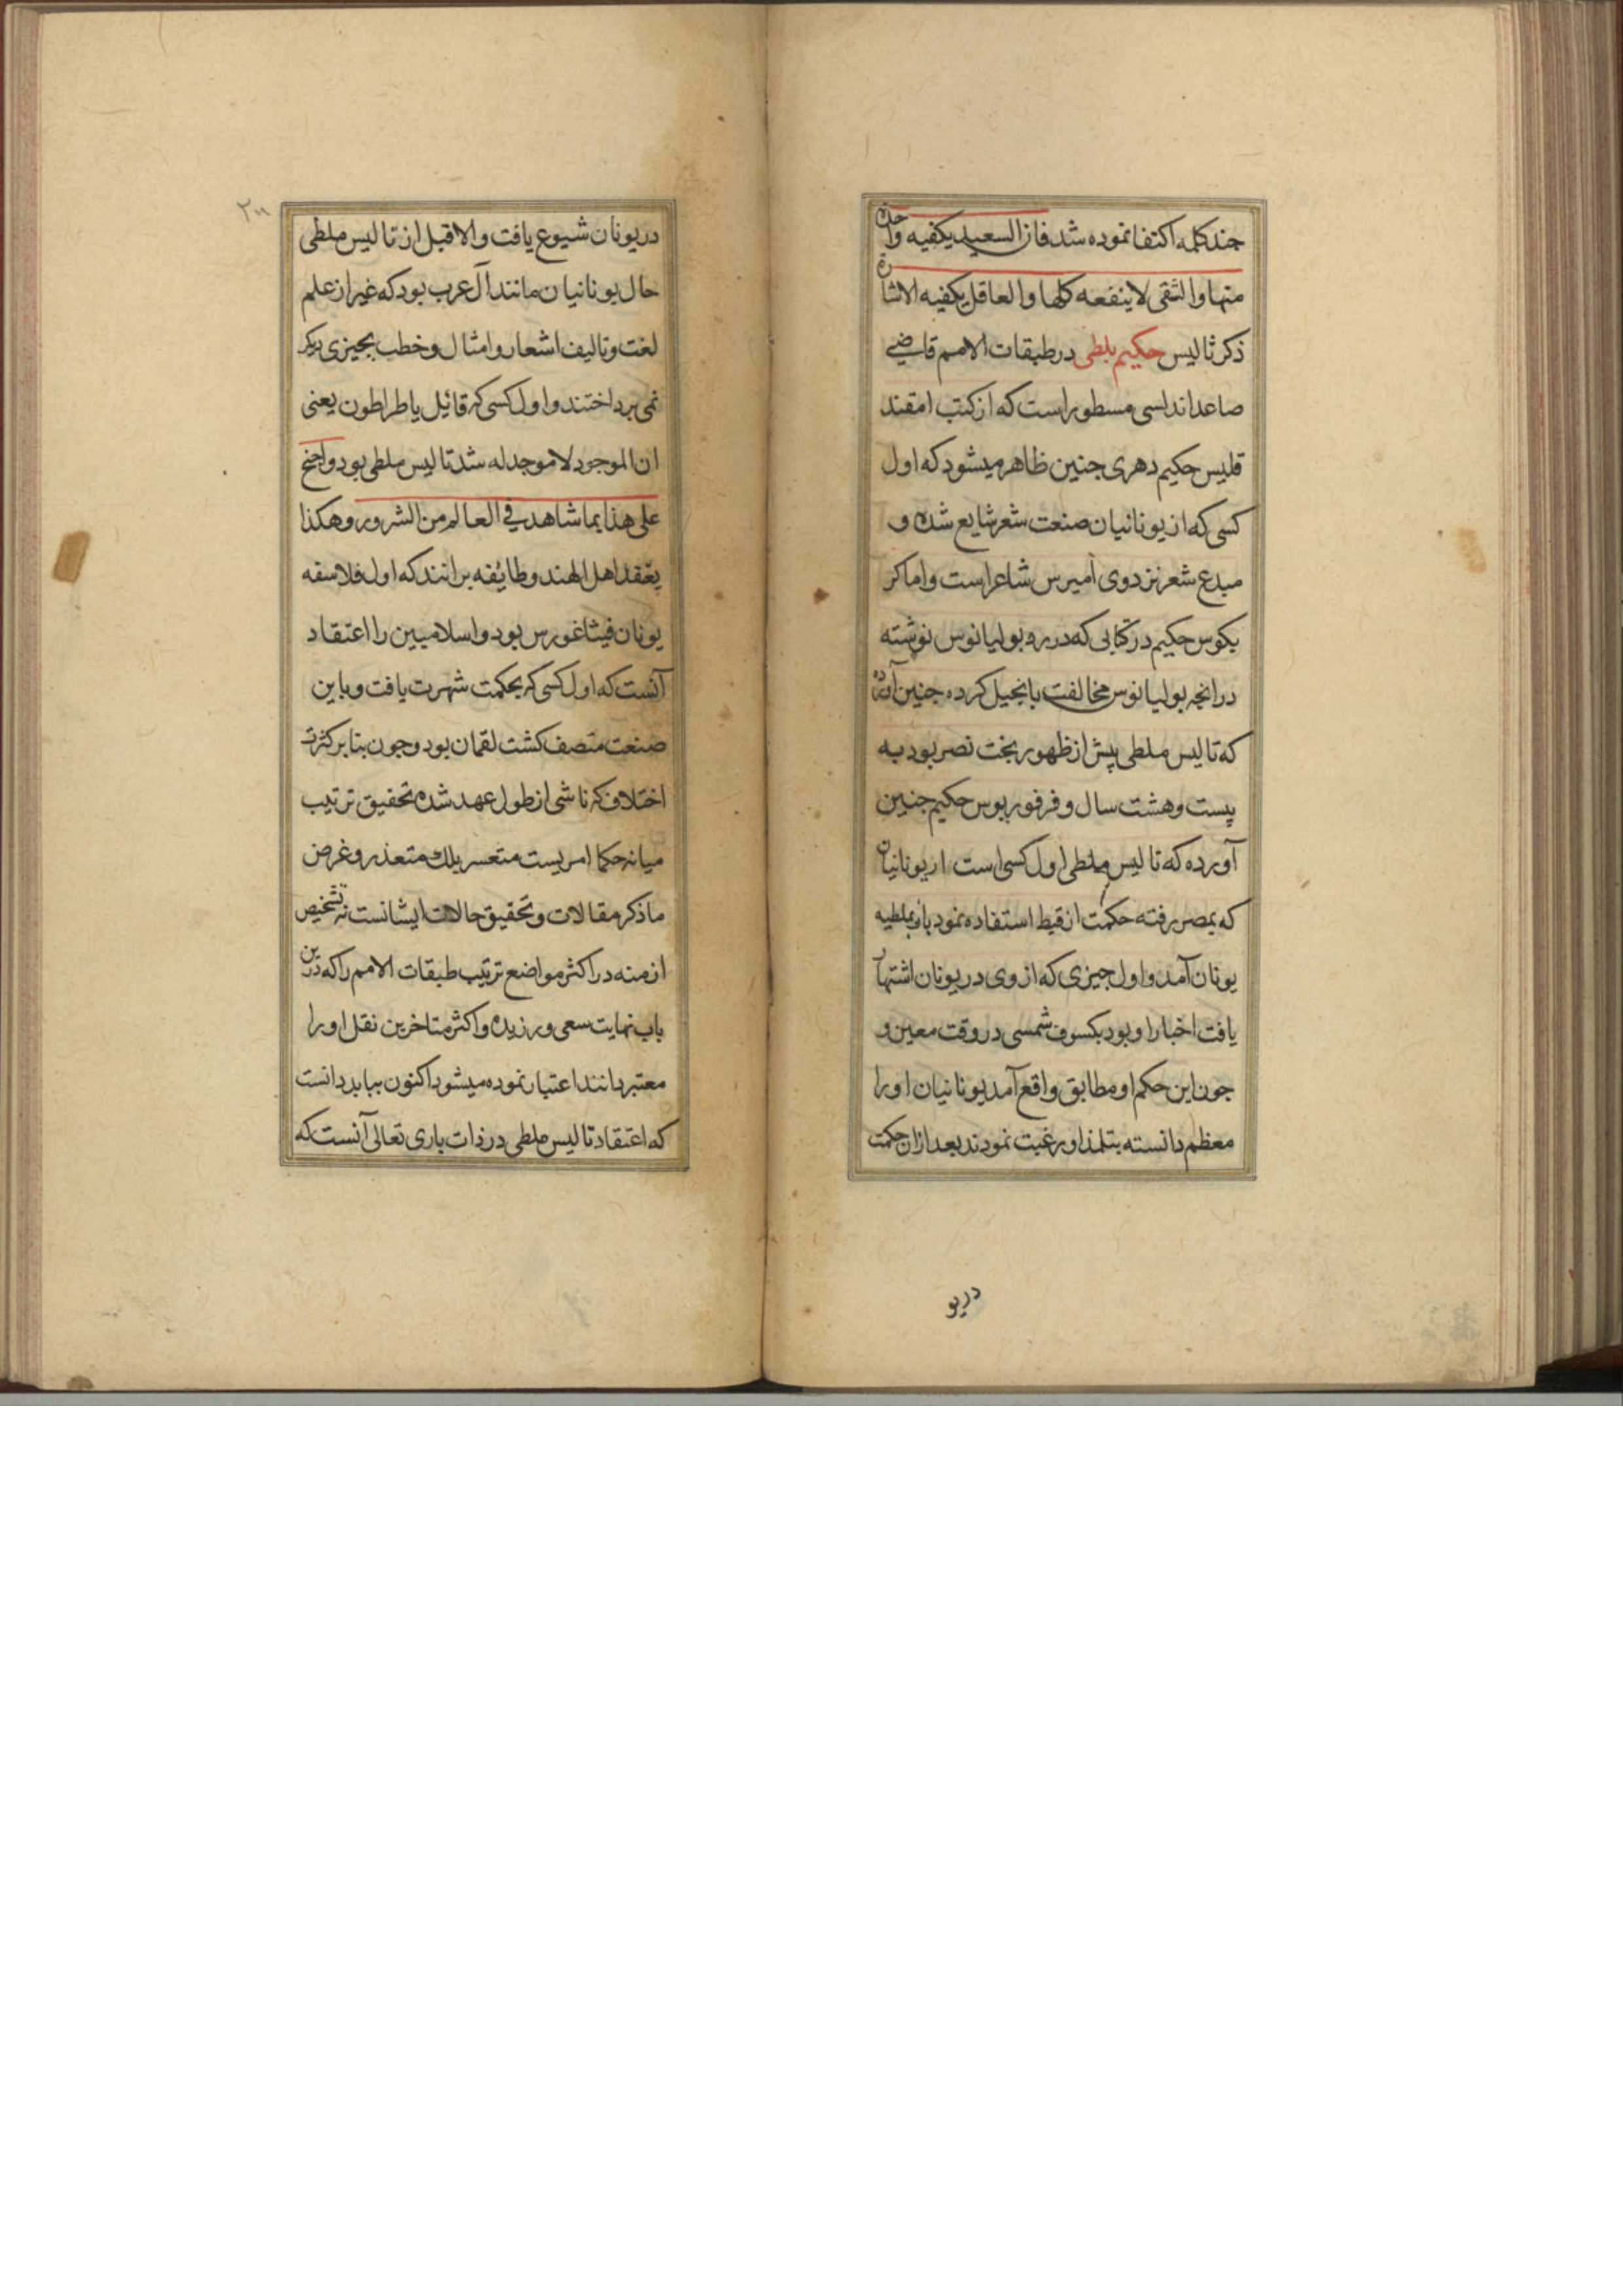 جند كلمه اكتفا نموده شد فان السعيد يكفيه واحدة
منها والشقى لاينفعه كلها والعاقل يكفيه الاشارة
ذكر ثاليس حكيم ملطى در طبقات الامم قاضى
صاعد اندلسى مسطور است كه از كتب امقند
قليس حكيم دهرى جنين ظاهر ميشود كه اول
كسى كه از يونانيان صنعت شعر شايع شده و
مبدع شعر نزد وى اميرس شاعر است و اما كر
يكوس حكيم در كتابى كه در رد بوليانوس نوشته
در انجه بوليانوس مخالفت بانجيل كرده جنين آورده
كه تاليس ملطى پيش از ظهور بخت نصر بود به
بيست و هشت سال و فرفوريوس حكيم جنين
آورده كه تاليس ملطى اول كسى است از يونانيان
كه بمصر رفته حكمت از قبط استفاده نمود بملطيه
يونان آمد و اول جيزى كه از وى در يونان اشتهار
يافت اخبار او بود بكسوف شمسى در وقت معين و
جون اين حكم او مطابق واقع آمد يونانيان او را
معظم دانسته بتلمذ او رغبت نمودند بعد از ان حكمت
دريو
٢٠٠
در يونان شيوع يافت والا قبل از تاليس ملطى
حال يونانيان مانند آل عرب بود كه غير از علم
لغت و تاليف اشعار و امثال و خطب بجيزى ديكر
نمى برداختند و اول كسى كه قائل باطراطون يعنى
ان الموجود لا موجد له شد تاليس ملطى بود واحتج
على هذا بما شاهد فى العالم من الشرور وهكذا
يعتقد اهل الهند و طايفه برانند كه اول فلاسفه
يونان فيثاغورس بود و اسلاميين را اعتقاد
آنست كه اول كسى كه بحكمت شهرت يافت و باين
صنعت متصف كشت لقمان بود و جون بنا بر كثرت
اختلاف كه ناشى از طول عهد شده تحقيق ترتيب
ميانه حكما امريست متعسر بلك متعذر و غرض
ما ذكر مقالات و تحقيق حالات ايشانست نه تشخيص
ازمنه در اكثر مواضع ترتيب طبقات الامم را كه درين
باب نهايت سعى ورزيده و اكثر متاخرين نقل او را
معتبر دانند اعتبار نموده ميشود اكنون ببايد دانست
كه اعتقاد تاليس ملطى در ذات بارى تعالى آنست كه